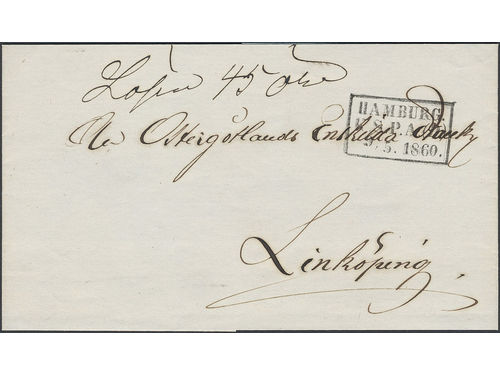 Lösen 45 öre
HAMBURG
K. S. P. A. (D)
9. 5. 1860.
Östergötlands Enskilda Bank
Linköping.